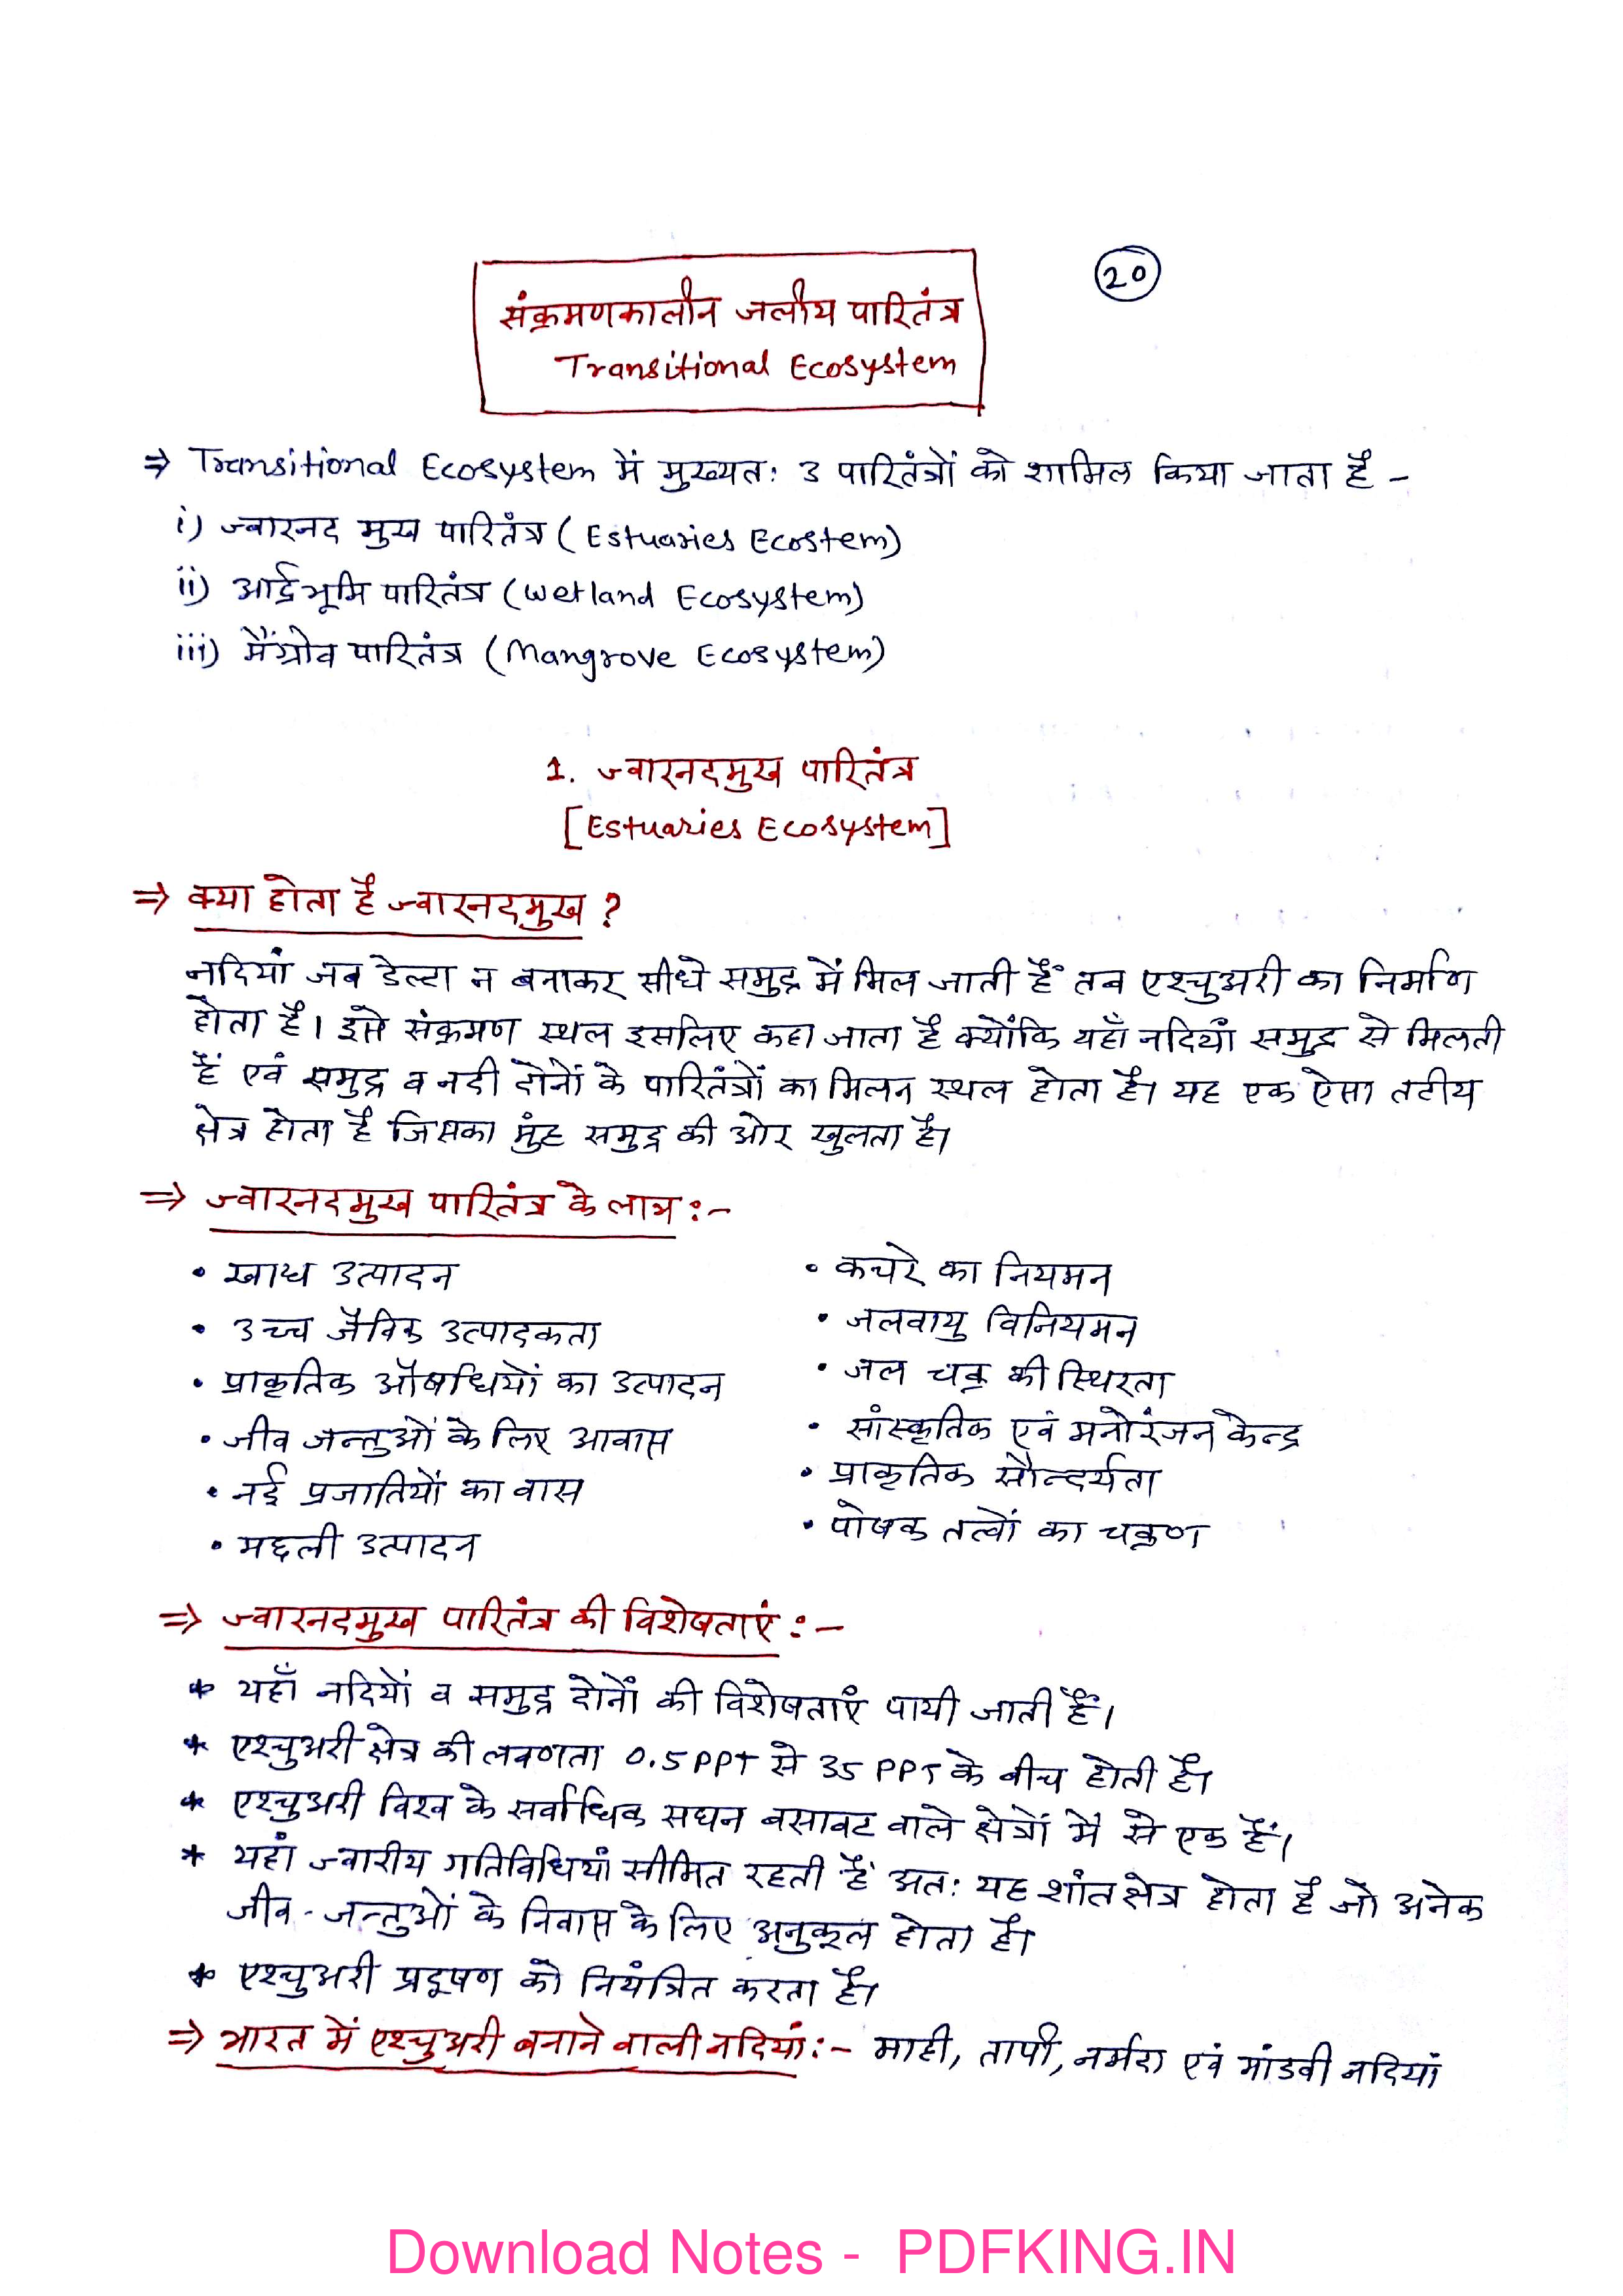 20
संक्रमणकालीन जलीय पारितंत्र
Transitional Ecosystem
⇒ Transitional Ecosystem में मुख्यत: 3 पारितंत्रों को शामिल किया जाता है -
i) ज्वारनद मुख पारितंत्र ( Estuaries Ecostem)
ii) आर्द्रभूमि पारितंत्र (Wetland Ecosystem)
iii) मैंग्रोव पारितंत्र (Mangrove Ecosystem)
1. ज्वारनदमुख पारितंत्र
[Estuaries Ecosystem]
⇒ क्या होता है ज्वारनदमुख ?
नदियां जब डेल्टा न बनाकर सीधे समुद्र में मिल जाती हैं तब एश्चुअरी का निर्माण
होता है। इसे संक्रमण स्थल इसलिए कहा जाता है क्योंकि यहाँ नदियाँ समुद्र से मिलती
हैं एवं समुद्र व नदी दोनों के पारितंत्रों का मिलन स्थल होता है। यह एक ऐसा तटीय
क्षेत्र होता है जिसका मुंह समुद्र की ओर खुलता है।
⇒ ज्वारनदमुख पारितंत्र के लाभ :-
• खाद्य उत्पादन
• उच्च जैविक उत्पादकता
• प्राकृतिक औषधियों का उत्पादन
• जीव जन्तुओं के लिए आवास
• नई प्रजातियों का वास
• मछली उत्पादन
• कचरे का नियमन
• जलवायु विनियमन
• जल चक्र की स्थिरता
• सांस्कृतिक एवं मनोरंजन केन्द्र
• प्राकृतिक सौन्दर्यता
• पोषक तत्वों का चक्रण
⇒ ज्वारनदमुख पारितंत्र की विशेषताएं :-
* यहाँ नदियों व समुद्र दोनों की विशेषताएं पायी जाती हैं।
* एश्चुअरी क्षेत्र की लवणता 0.5 PPT से 35 PPT के बीच होती है।
* एश्चुअरी विश्व के सर्वाधिक सघन बसावट वाले क्षेत्रों में से एक हैं।
* यहां ज्वारीय गतिविधियां सीमित रहती हैं अत: यह शांत क्षेत्र होता है जो अनेक
जीव-जन्तुओं के निवास के लिए अनुकूल होता है।
* एश्चुअरी प्रदूषण को नियंत्रित करता है।
⇒ भारत में एश्चुअरी बनाने वाली नदियां :- माही, तापी, नर्मदा एवं मांडवी नदियां
Download Notes - PDFKING.IN